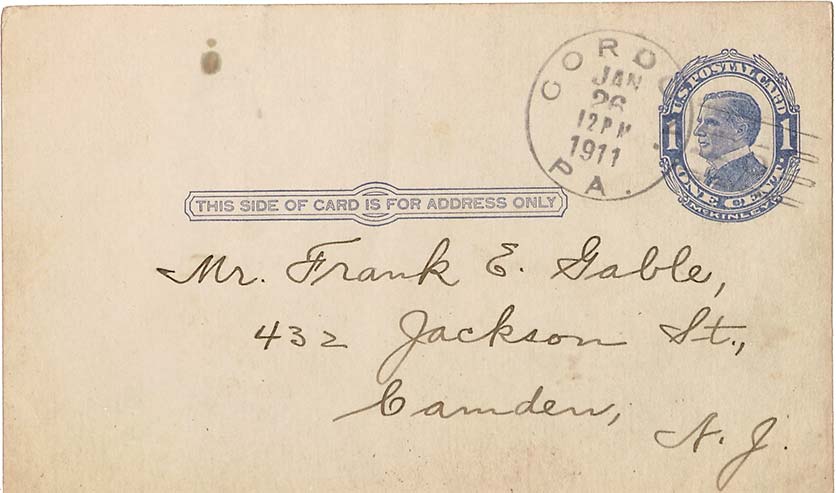 CORDO
JAN
26
12 PM
1911
PA.
U.S. POSTAL CARD
1 1
ONE CENT
MCKINLEY
THIS SIDE OF CARD IS FOR ADDRESS ONLY
Mr. Frank E. Gable,
432 Jackson St.,
Camden,
N. J.